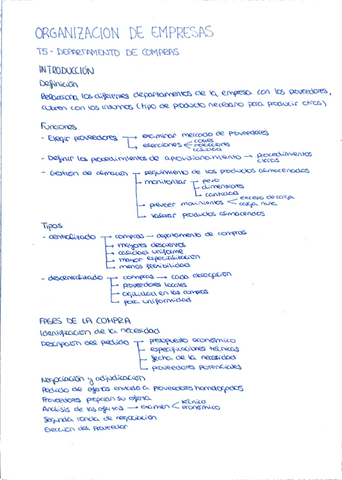 ORGANIZACION DE EMPRESAS
T5 - DEPARTAMENTO DE COMPRAS
INTRODUCCIÓN
Definición
Relaciona los diferentes departamentos de la empresa con los proveedores,
cubren con los insumos (tipo de producto necesario para producir otros)
Funciones
- Elegir proveedores → examinar mercado de proveedores
→ selecciones
relaciones
calidad
- Definir los procedimientos de aprovisionamiento → procedimientos
- Gestion de almacén → seguimiento de los productos almacenados
→ monitorizar → peso
→ dimensiones
→ cantidad
→ preveer movimientos < exceso de carga
carga nula
→ valorar productos almacenados
Tipos
- centralizado → compras → departamento de compras
→ mayores descuentos
→ calidad uniforme
→ mayor especialización
→ menos flexibilidad
- descentralizado → compras → cada
→ proveedores locales
→ agilidad en las compras
→ poca uniformidad
FASES DE LA COMPRA
Identificación de la necesidad
Descripción del pedido → presupuesto económico
→ especificaciones técnicas
→ fecha de la necesidad
→ proveedores potenciales
Negociación y adjudicación
Pedido de ofertas enviado a proveedores homologados
Proveedores preparan su oferta
Análisis de las ofertas → examen < técnico
económico
Segunda ronda de negociación
Elección del proveedor